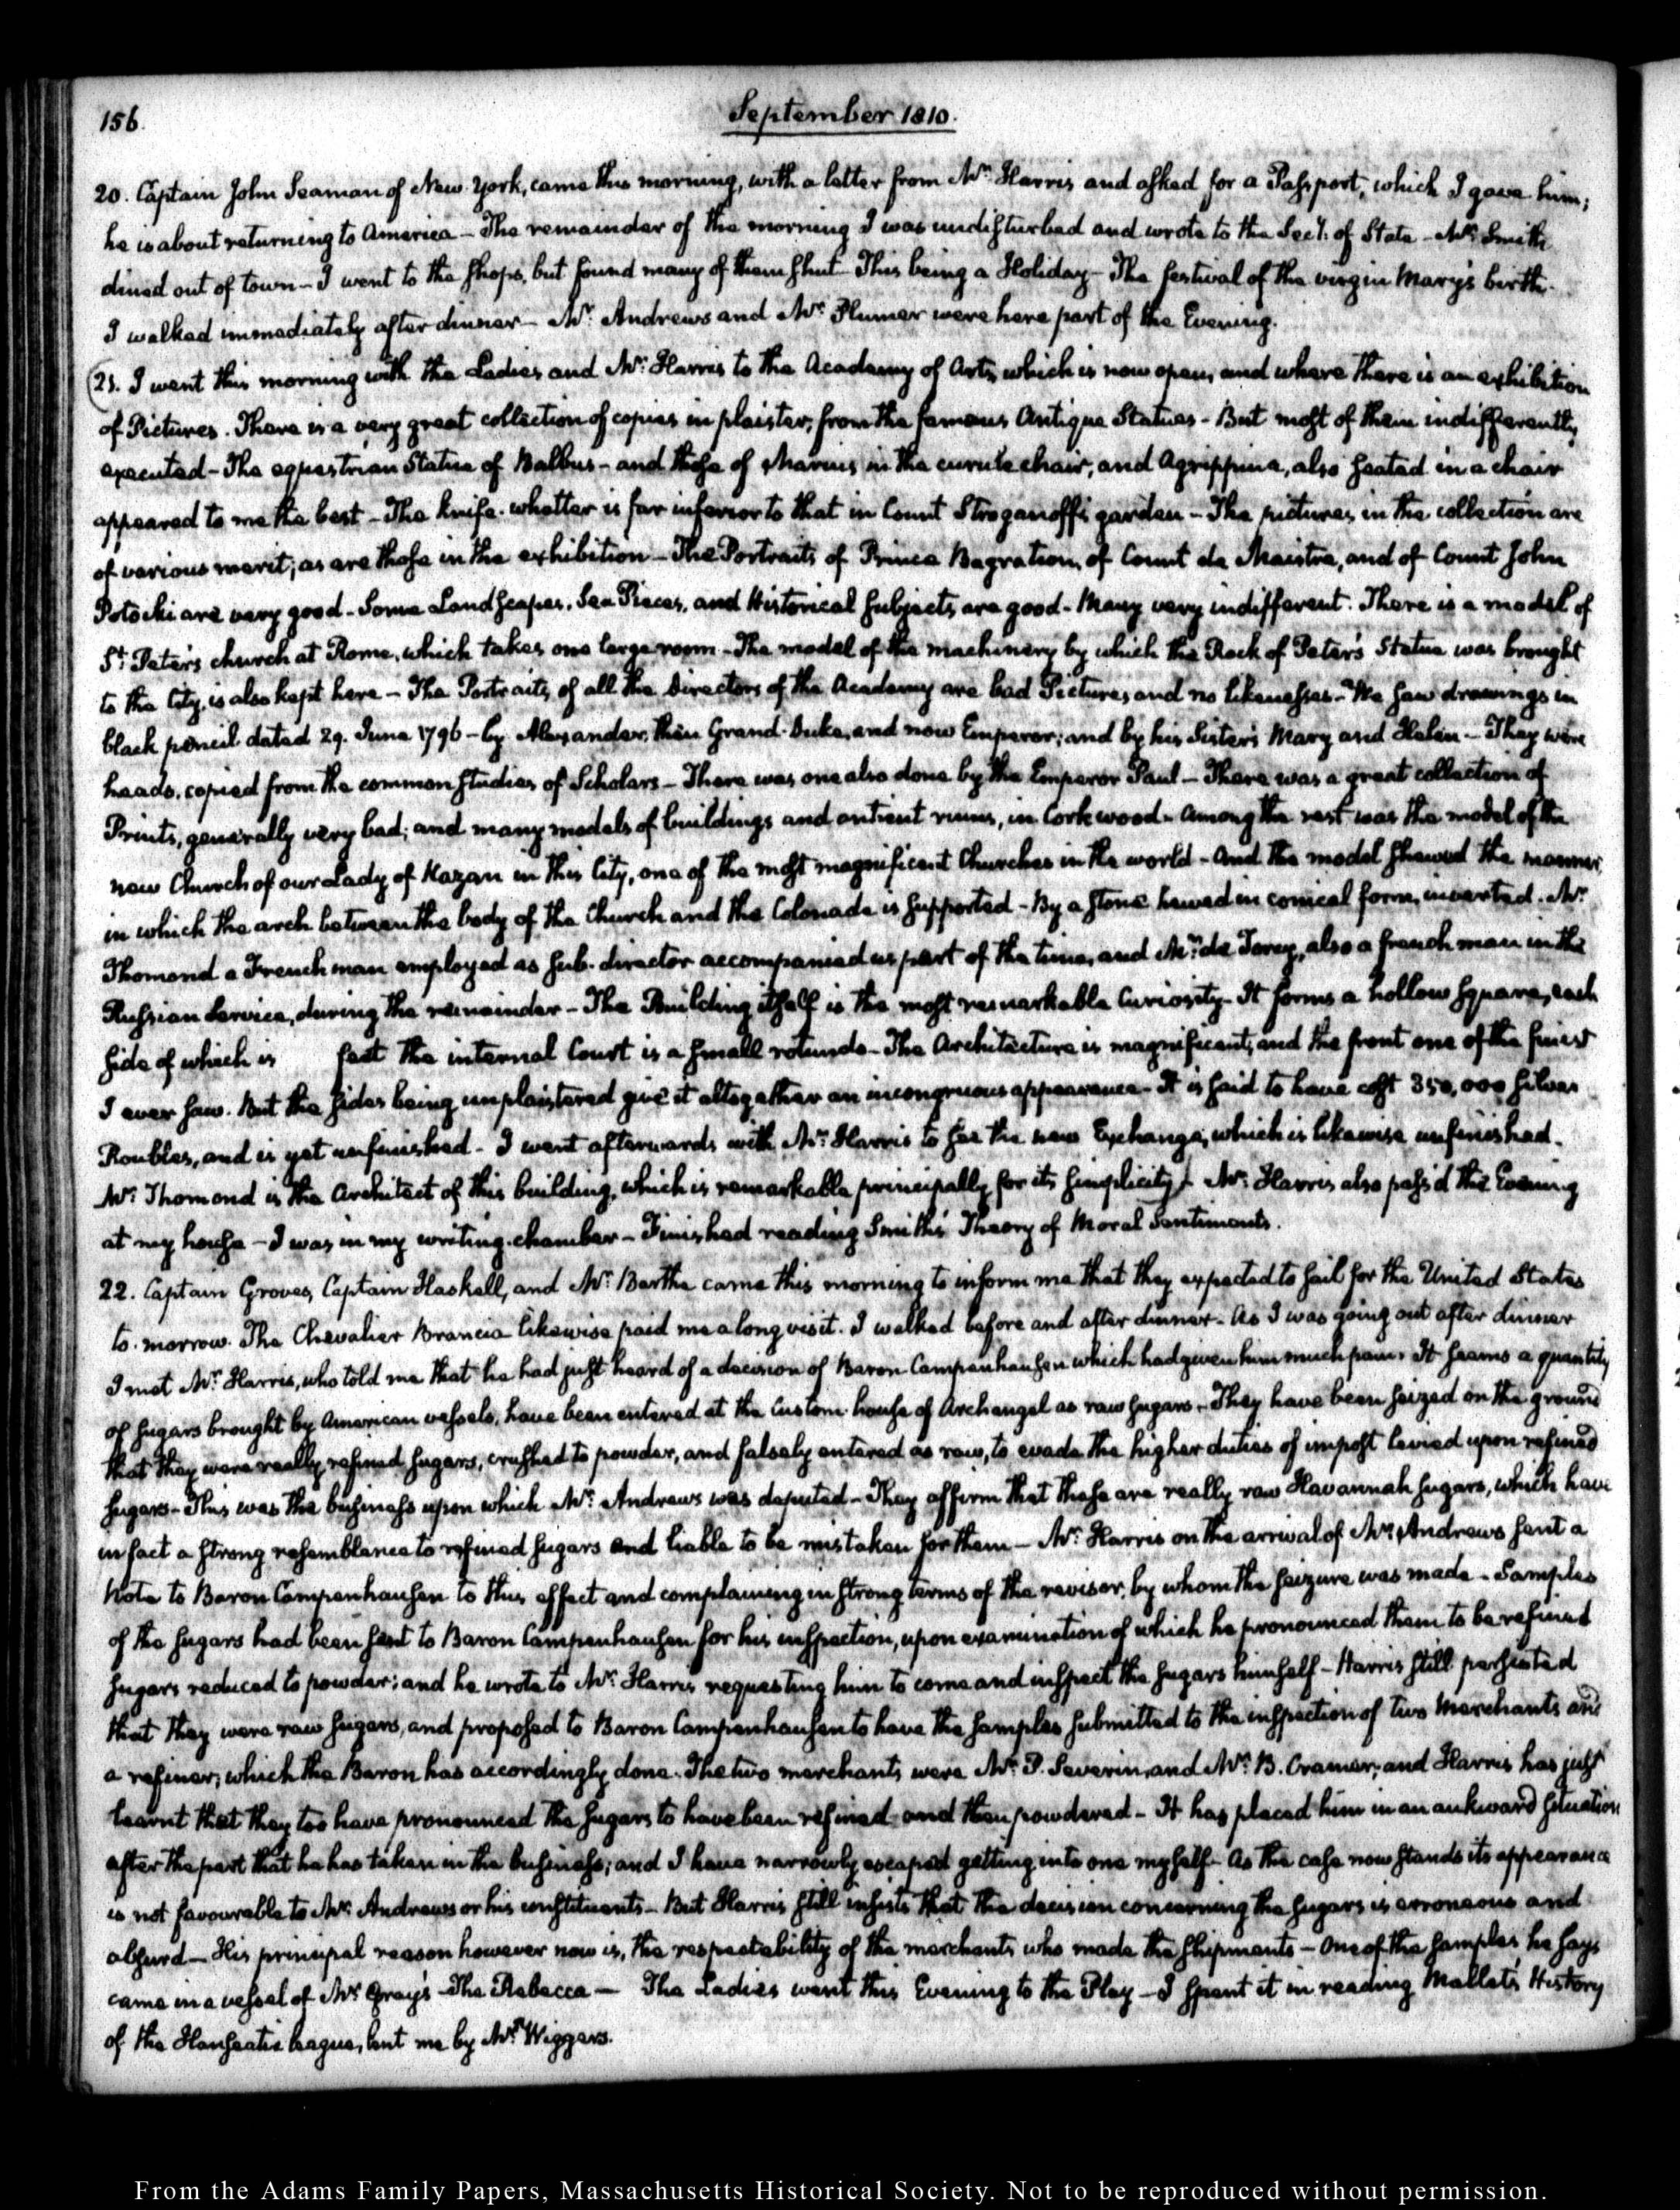 156.
September 1810.
20. Captain John Seaman of New York, came this morning, with a letter from Mr. Harris and asked for a Passport, which I gave him;
he is about returning to America — The remainder of the morning I was undisturbed and wrote to the Secy. of State — Mr. Smith
dined out of town — I went to the shops, but found many of them shut — This being a Holiday — The festival of the virgin Mary's birth.
I walked immediately after dinner — Mr. Andrews and Mr. Plumer were here part of the Evening.
21. I went this morning with the Ladies and Mr. Harris to the Academy of Arts, which is now open, and where there is an exhibition
of Pictures. There is a very great collection of copies in plaister, from the famous Antique Statues — But most of them indifferently
executed — The equestrian Statue of Balbus — and those of Marius in the curule chair, and Agrippina, also seated in a chair
appeared to me the best — The knife-whetter is far inferior to that in Count Stroganoff's garden — The pictures in the collection are
of various merit; as are those in the exhibition — The Portraits of Prince Bagration, of Count de Maistre, and of Count John
Potocki are very good — Some Landscapes, Sea Pieces, and Historical subjects are good — Many very indifferent. There is a model of
St. Peter's church at Rome, which takes one large room — The model of the machinery by which the Rock of Peter's Statue was brought
to the City, is also kept here — The Portraits of all the Directors of the Academy are bad Pictures, and no likenesses — We saw drawings in
black pencil dated 29. June 1796 — by Alexander, then Grand-Duke, and now Emperor; and by his Sisters Mary and Helen — They were
heads, copied from the common studies of Scholars — There was one also done by the Emperor Paul — There was a great collection of
Prints, generally very bad; and many models of buildings and antient ruins, in Cork wood — Among the rest was the model of the
new Church of our Lady of Kazan in this City, one of the most magnificent Churches in the world — And the model shewed the manner
in which the arch between the body of the Church and the Colonade is supported — By a stone hewed in conical form, inverted. Mr.
Thomond a Frenchman employed as sub-director accompanied us part of the time, and Mr. de Torcy, also a french man in the
Russian Service, during the remainder — The Building itself is the most remarkable Curiosity — It forms a hollow square, each
side of which is feet the internal Court is a small rotunda — The Architecture is magnificent, and the front one of the finest
I ever saw. But the sides being unplaistered give it altogether an incongruous appearance — It is said to have cost 350,000 silver
Roubles, and is yet unfinished — I went afterwards with Mr. Harris to see the new Exchange, which is likewise unfinished.
Mr. Thomond is the Architect of this building, which is remarkable principally for its simplicity — Mr. Harris also pass'd the Evening
at my house — I was in my writing-chamber — Finished reading Smith's Theory of Moral Sentiments.
22. Captain Groves, Captain Haskell, and Mr. Barthe came this morning to inform me that they expected to sail for the United States
to-morrow. The Chevalier Brancia likewise paid me a long visit. I walked before and after dinner — As I was going out after dinner
I met Mr. Harris, who told me that he had just heard of a decision of Baron Campenhausen which had given him much pain. It seems a quantity
of sugars brought by American vessels, have been entered at the Custom-house of Archangel as raw sugars — They have been seized on the ground
that they were really refined sugars, crushed to powder, and falsely entered as raw, to evade the higher duties of impost levied upon refined
sugars — This was the business upon which Mr. Andrews was deputed — They affirm that these are really raw Havannah sugars, which have
in fact a strong resemblance to refined sugars and liable to be mistaken for them — Mr. Harris on the arrival of Mr. Andrews sent a
Note to Baron Campenhausen to this effect and complaining in strong terms of the revisor, by whom the seizure was made — Samples
of the sugars had been sent to Baron Campenhausen for his inspection, upon examination of which he pronounced them to be refined
sugars reduced to powder; and he wrote to Mr. Harris requesting him to come and inspect the sugars himself — Harris still persisted
that they were raw sugars, and proposed to Baron Campenhausen to have the samples submitted to the inspection of two Merchants and
a refiner; which the Baron has accordingly done. The two merchants were Mr. P. Severin, and Mr. B. Cramer; and Harris has just
learnt that they too have pronounced the sugars to have been refined and then powdered — It has placed him in an aukward situation
after the part that he has taken in the business; and I have narrowly escaped getting into one myself — As the case now stands its appearance
is not favourable to Mr. Andrews or his constituents — But Harris still insists that the decision concerning the sugars is erroneous and
absurd — His principal reason however now is, the respectability of the merchants who made the shipments — One of the samples he says
came in a vessel of Mr. Gray's — The Rebecca — The Ladies went this Evening to the Play — I spent it in reading Mallet's History
of the Hanseatic league, lent me by Mr. Wiggers.
From the Adams Family Papers, Massachusetts Historical Society. Not to be reproduced without permission.